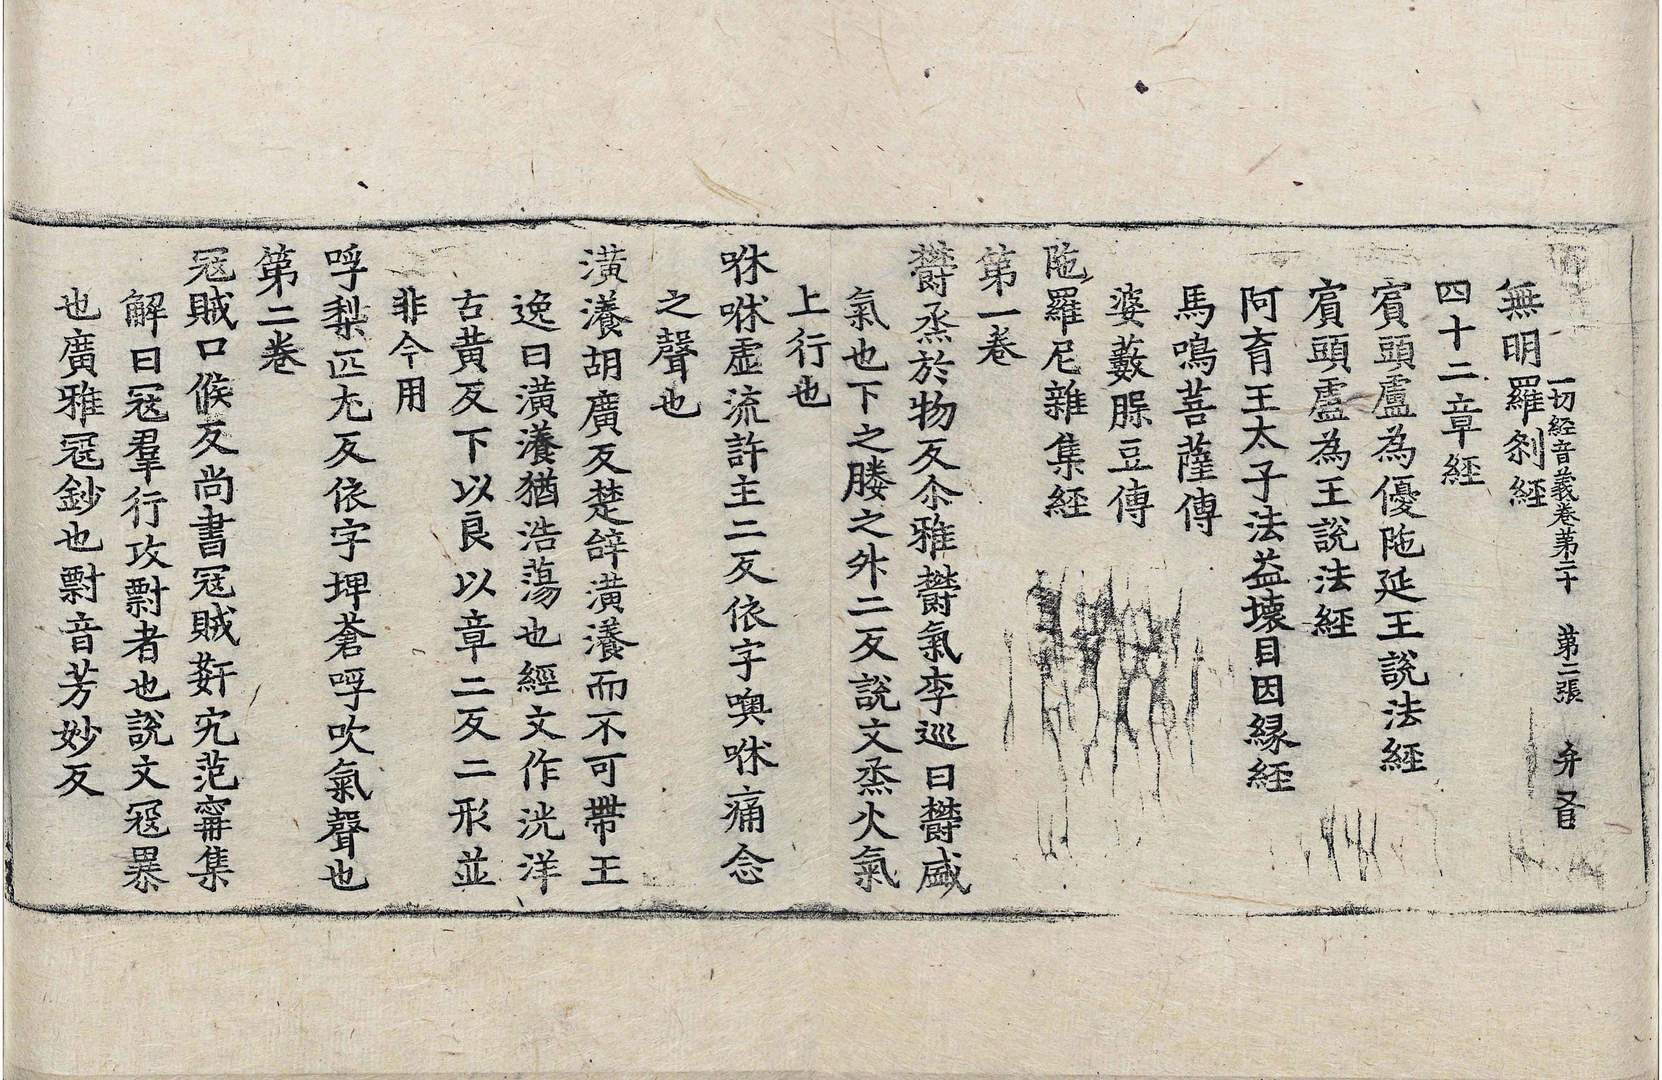 一切經音義卷第二十 第二張 弁
無明羅刹經
四十二章經
賔頭盧為優陁延王說法經
賔頭盧為王說法經
阿育王太子法益壞目因緣經
馬鳴菩薩傳
婆藪䐗豆傳
陁羅尼雜集經
第一卷
欎烝於物反尒雅欎氣李巡曰欎盛
氣也下之媵之外二反說文烝火氣
上行也
咻咻虛流許主二反依字噢咻痛念
之聲也
潢瀁胡廣反楚辝潢瀁而不可帶王
逸曰潢瀁猶浩蕩也經文作洸洋
古黄反下以良以章二反二形並
非今用
呼梨匹尢反依字埤蒼呼吹氣聲也
第二卷
冦賊口候反尚書冦賊姧宄范甯集
解曰冦羣行攻剽者也說文冦暴
也廣雅冦鈔也剽音芳妙反